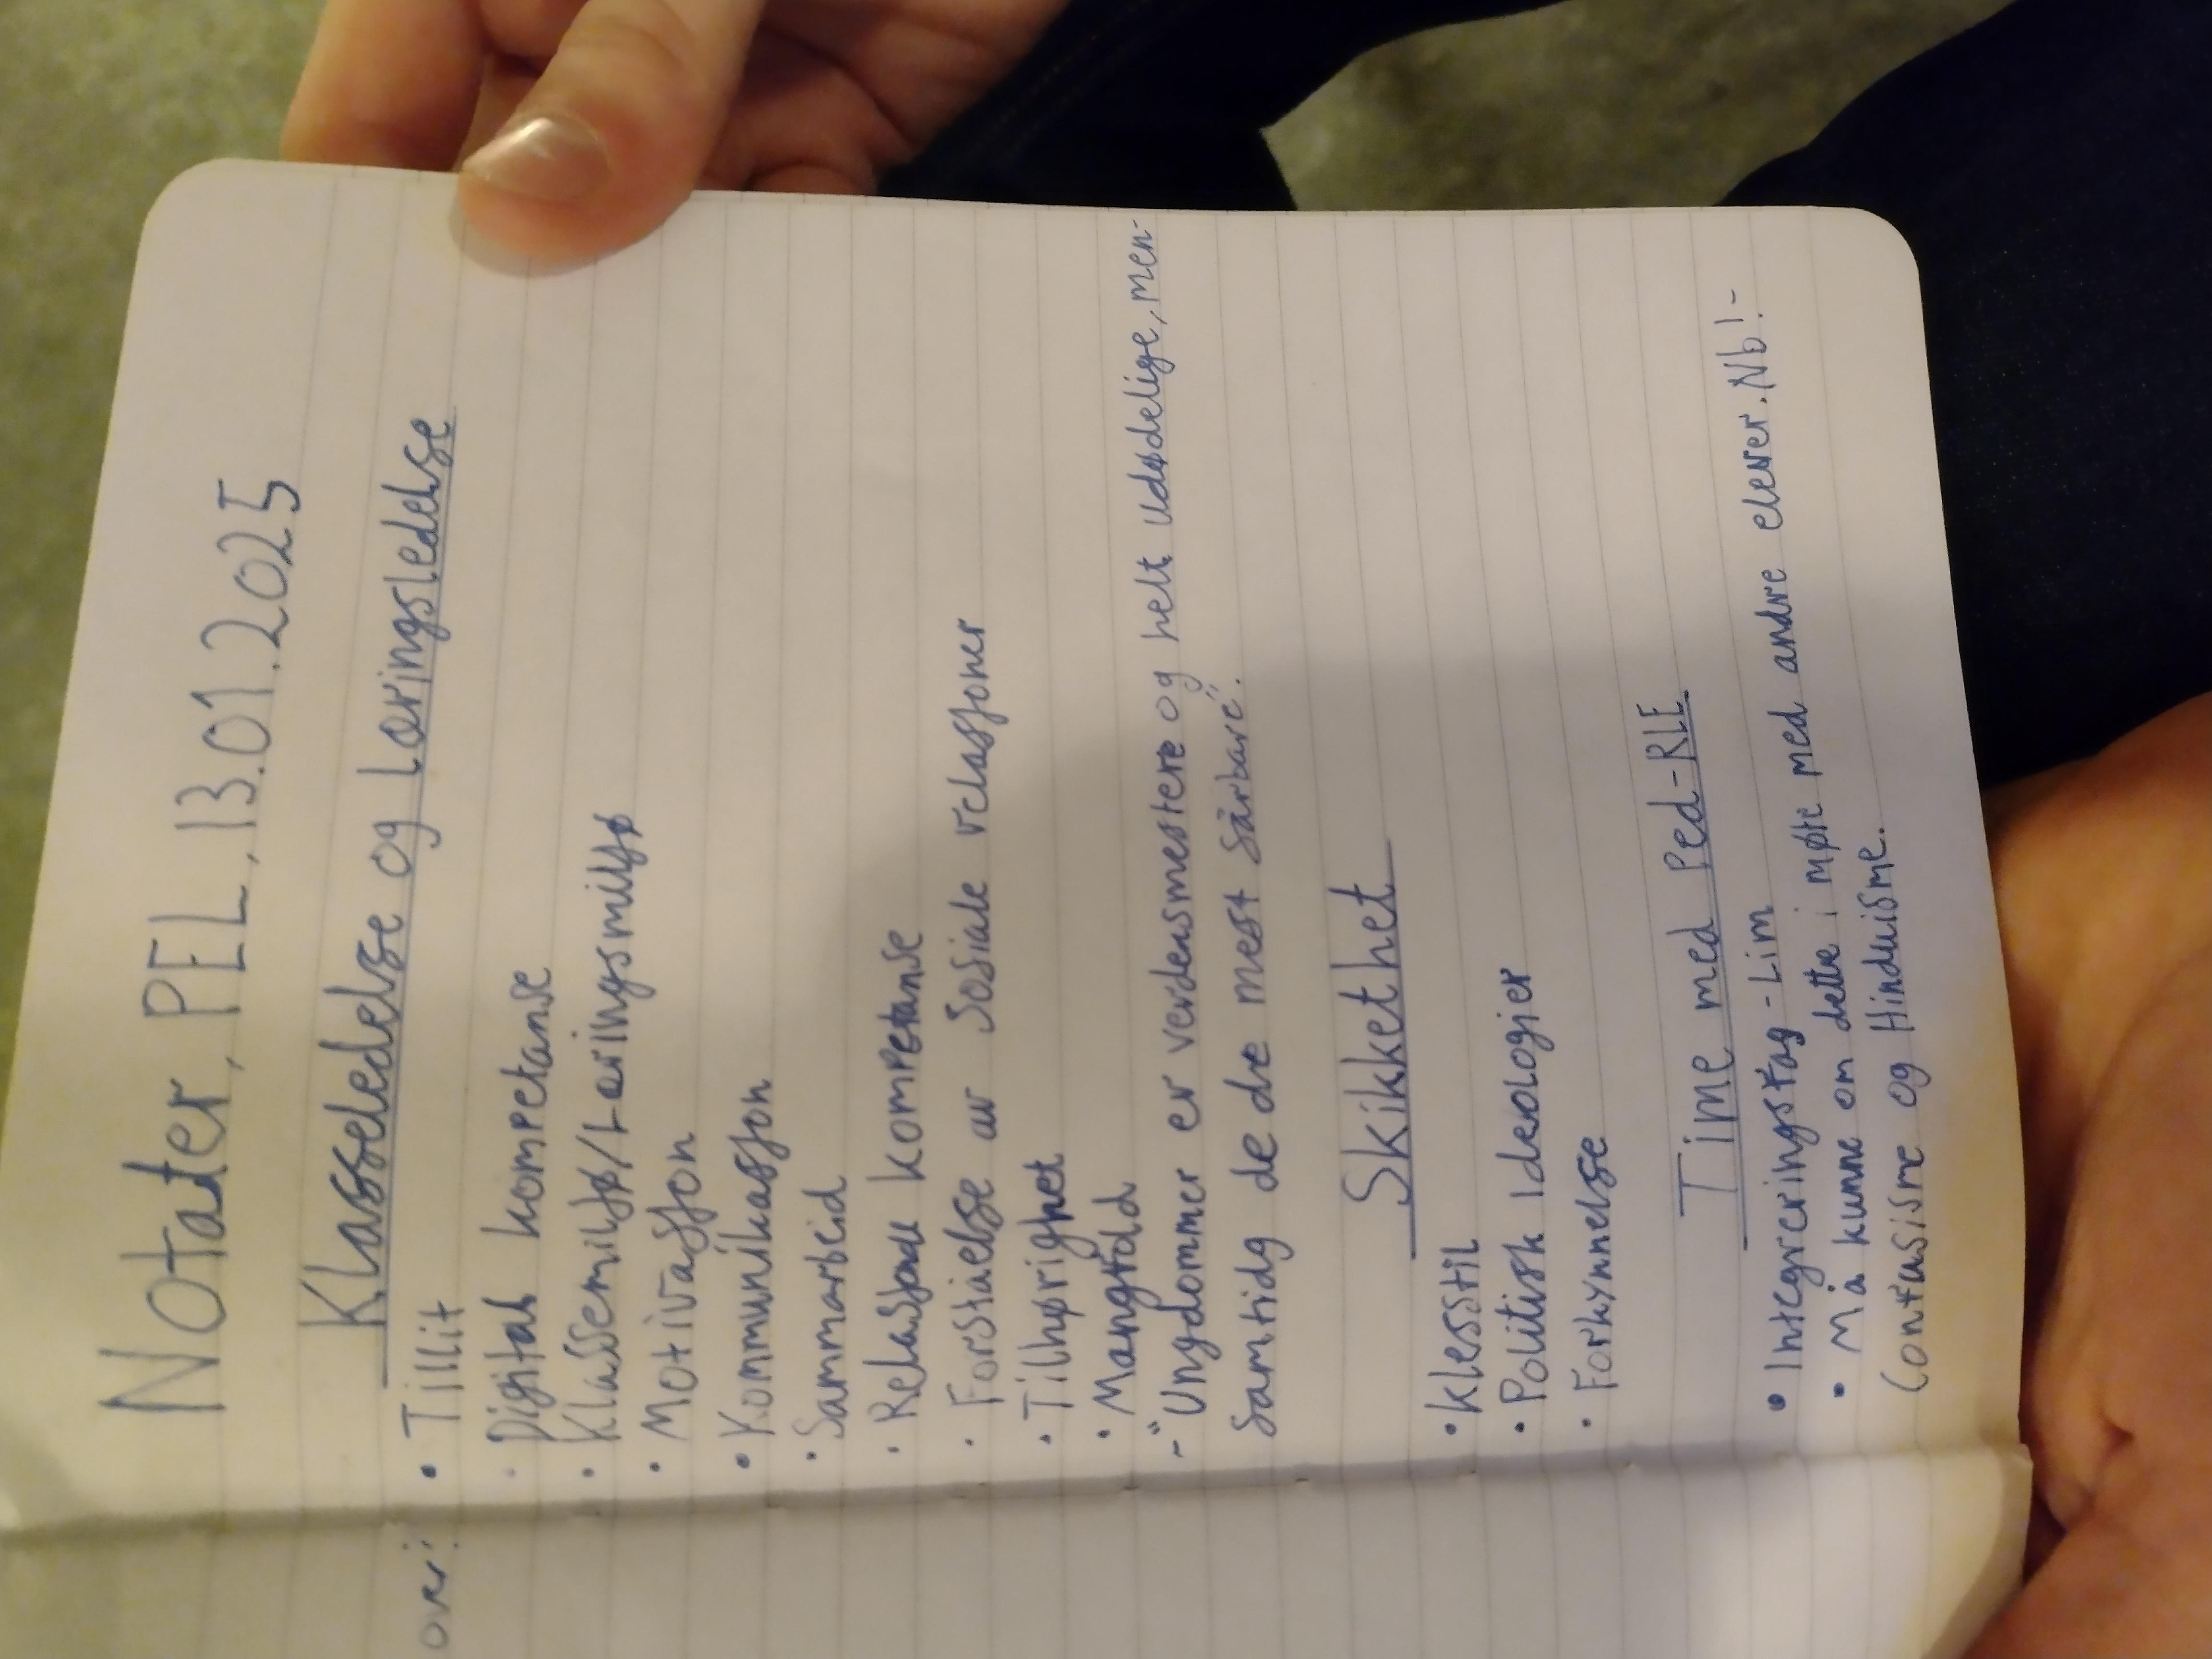 Notater, PEL, 13.01.2025
Klasseledelse og Læringsledelse
over:
• Tillit
• Digital kompetanse
• Klassemiljø/Læringsmiljø
• Motivasjon
• Kommunikasjon
• Sammarbeid
• Relasjonell kompetanse
• Forståelse av Sosiale relasjoner
• Tilhørighet
• Mangfold
- "Ungdommer er verdensmestere og helt udødelige, men-
Samtidg de de mest sårbare".
Skikkethet
• Klesstil
• Politisk Ideologier
• Forkynnelse
Time med Ped-RLE
• Integreringsfag - Lim
• Må kunne om dette i møte med andre elever. Nb! -
Confusisme og Hinduisme.